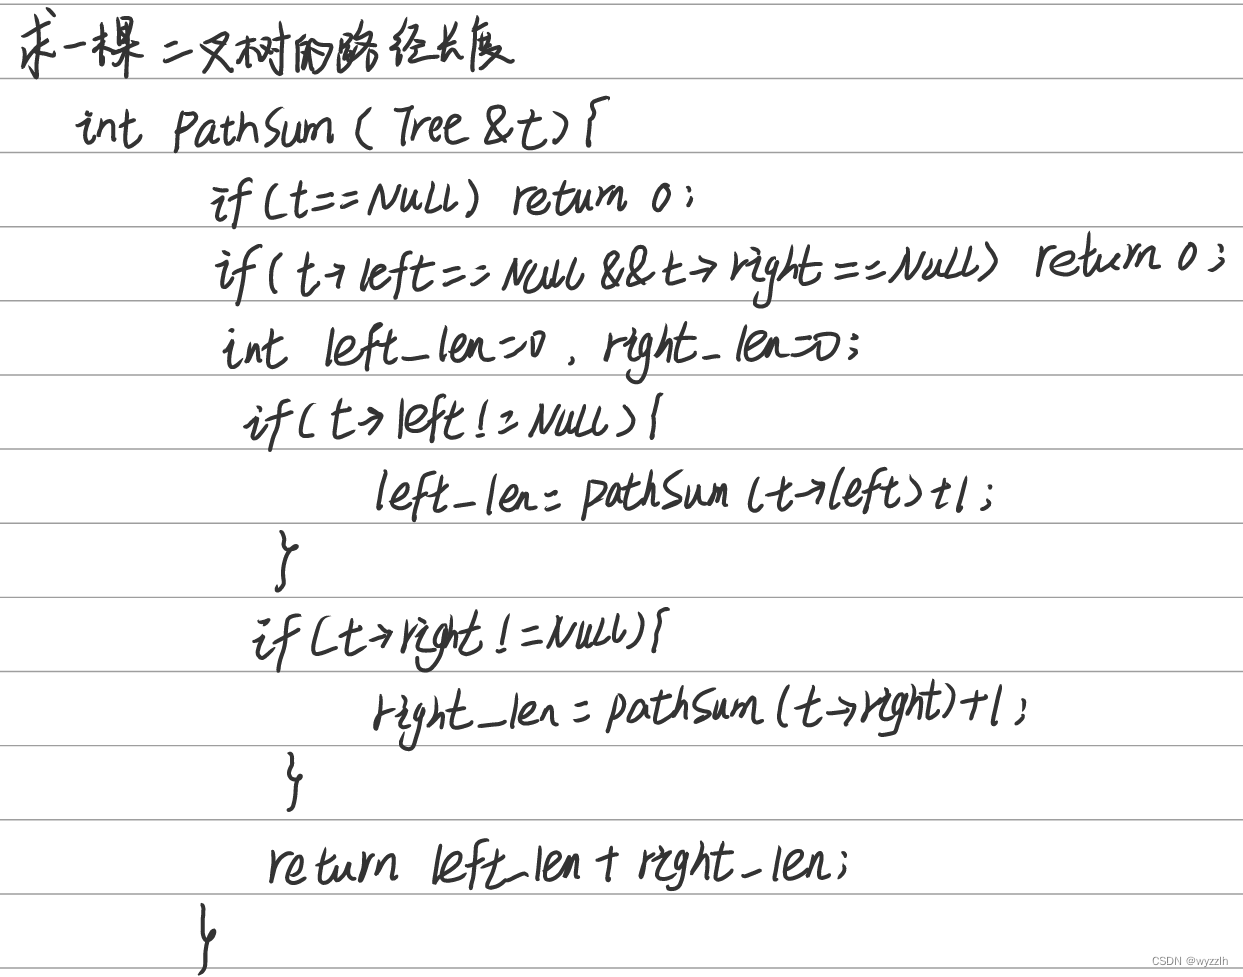 求一棵二叉树的路径长度
int pathSum ( Tree &t){
if(t==NULL) return 0;
if( t→left==NULL && t→right==NULL) return 0;
int left_len=0, right_len=0;
if( t→left!=NULL){
left_len= pathSum (t→left)+1;
}
if(t→right!=NULL){
right_len= pathSum (t→right)+1;
}
return left_len + right_len;
}
CSDN @wyzzlh